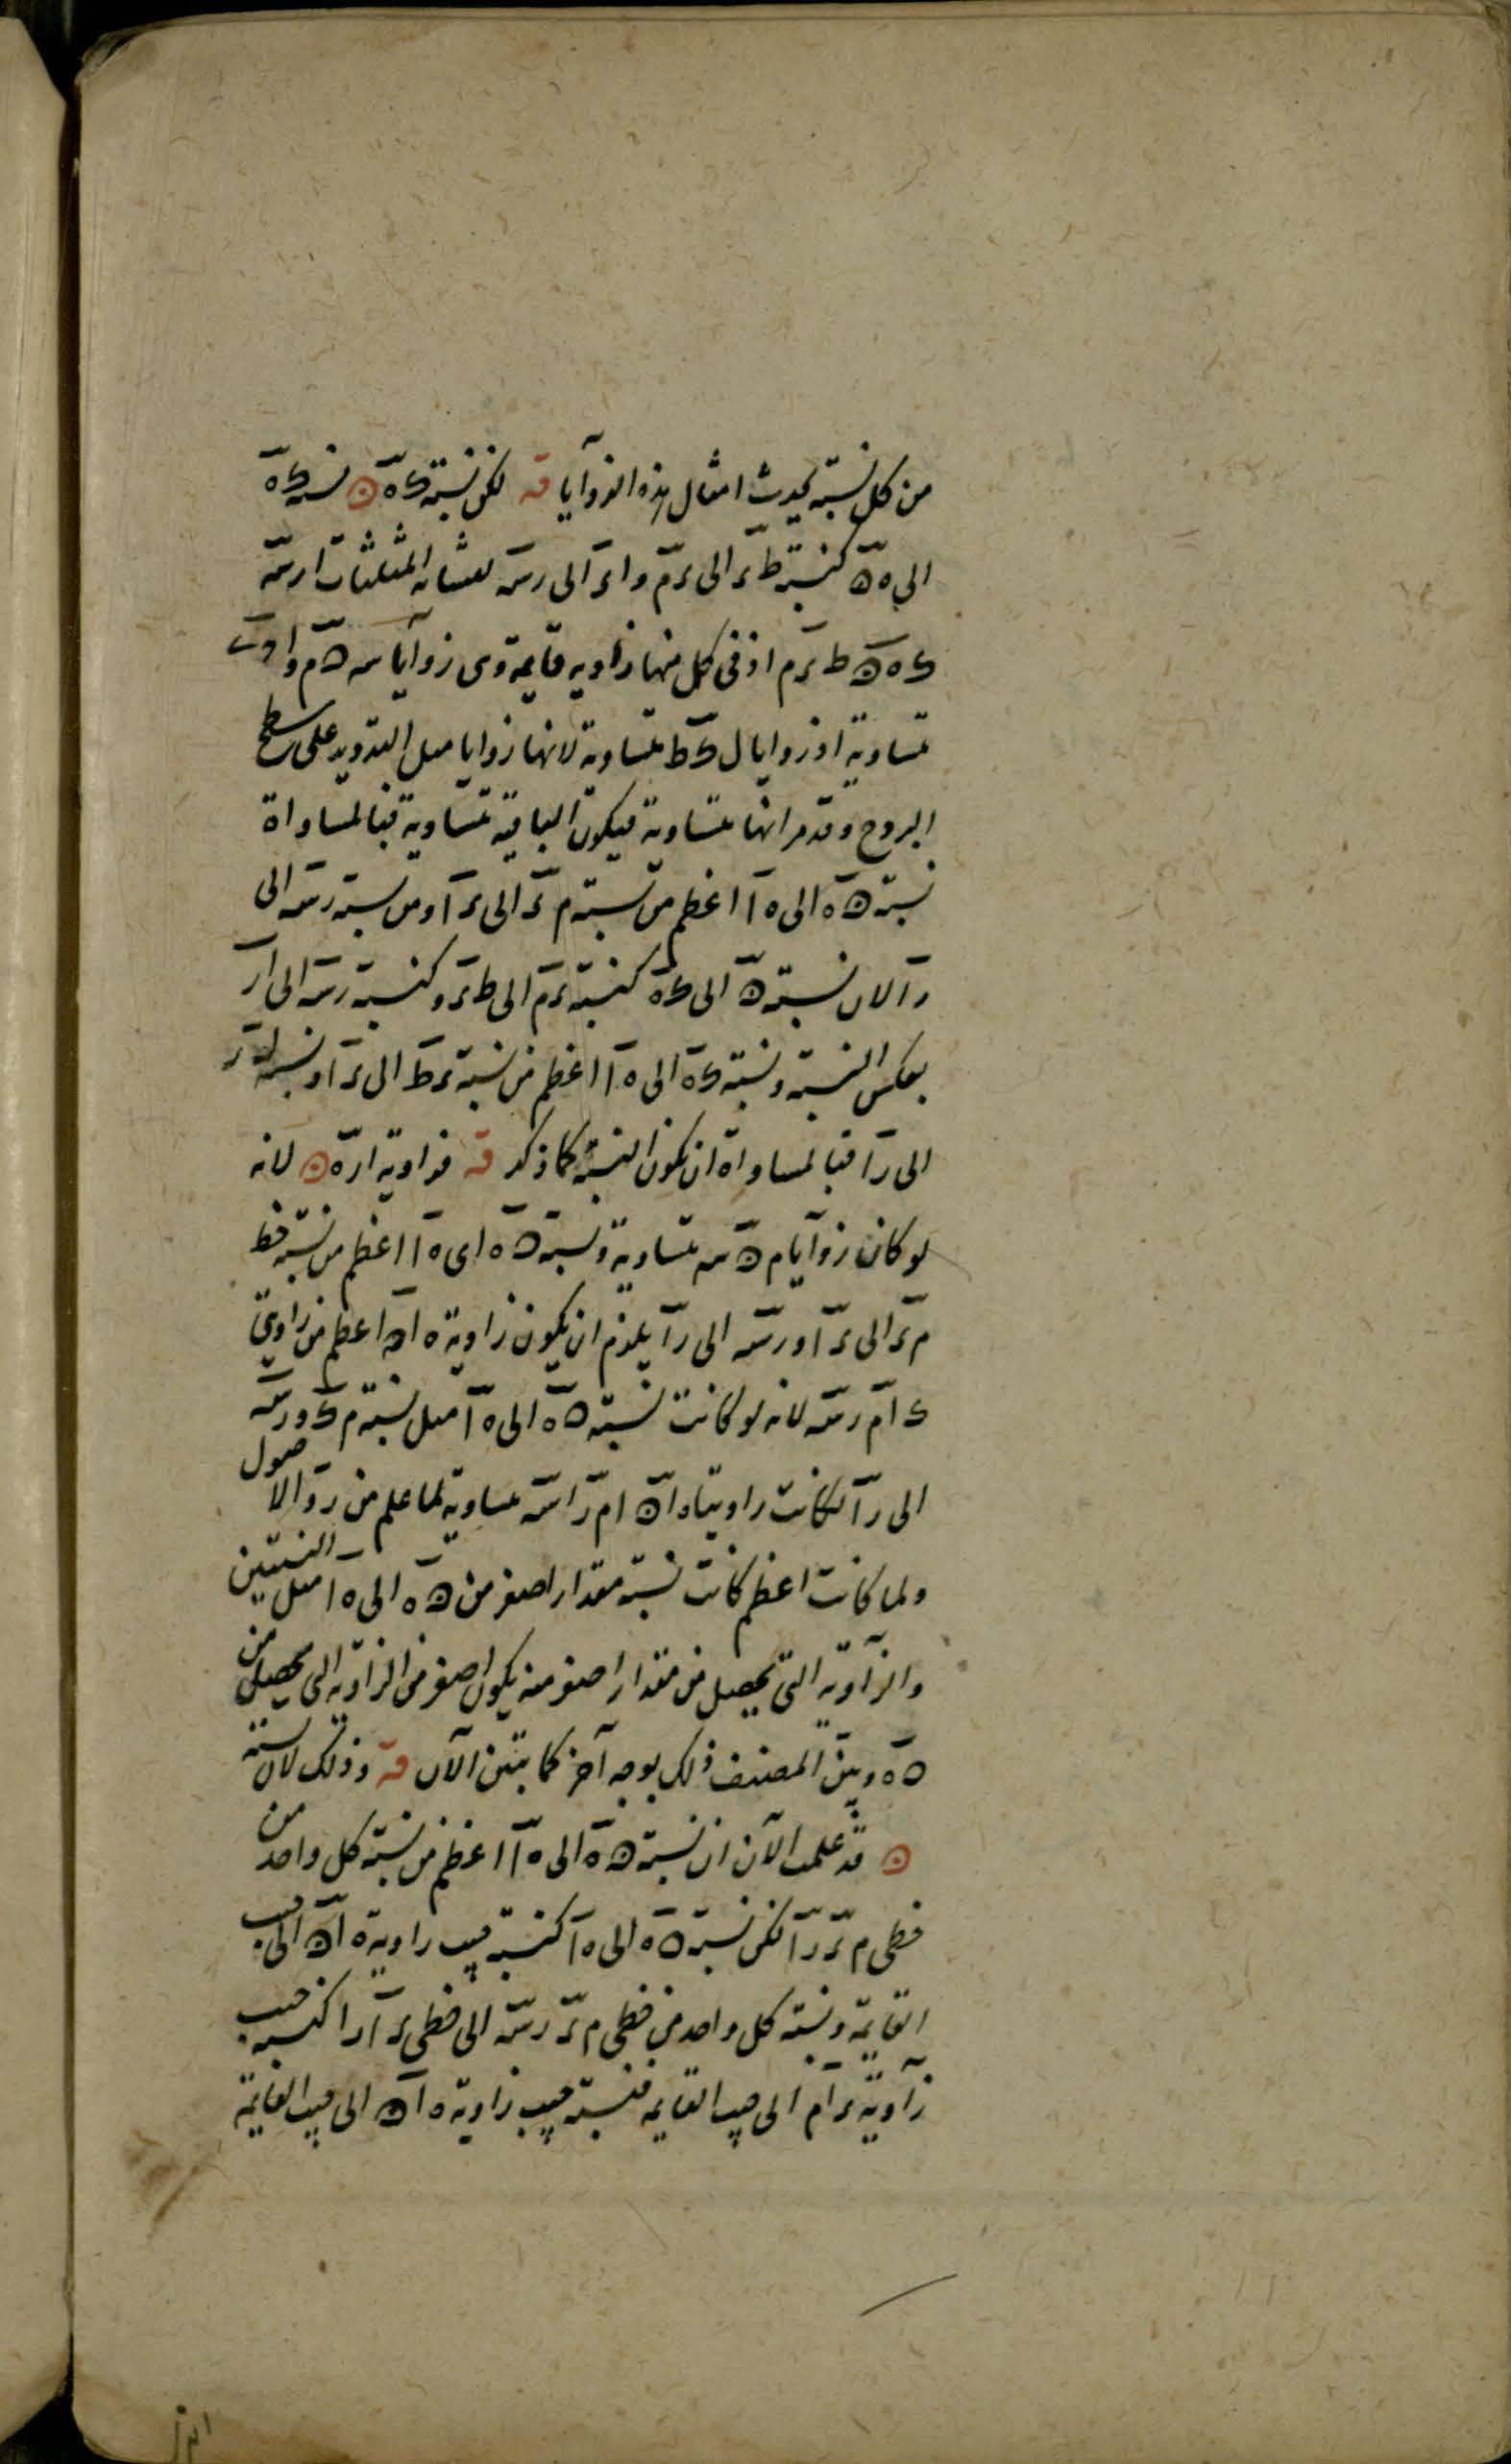 من كل نسبة يحدث امثال هذه الزوايا قه لكن نسبة ك ه نسبة ك ه
الى ه ن كنسبة ط ز الى ز م و ا ر الى ر س لتشابه المثلثات ا ر س
ك ه ن ط ز م اذ فى كل منها زاوية قايمة وهى زوايا س ن م و
متساوية اذ زوايا ل ك ط متساوية لانها زوايا ميل التدوير على سطح
البروج وقد مر انها متساوية فيكون الباقية متساوية فبالمساواة
نسبة ن ه الى ه ا اعظم من نسبة م ز الى ز ا ومن نسبة ر س الى
ر ا لان نسبة ه ن الى ك ه كنسبة ز م الى ط ز وكنسبة ر س الى ا ر
بعكس النسبة ونسبة ك ه الى ه ا اعظم من نسبة ز ط الى ز ا ونسبة ا ر
الى ر ا فبالمساواة ان يكون النسبة كما ذكر قه فزاوية ا ر ه لانه
لو كان زوايا م ن س متساوية ونسبة ن ه الى ه ا اعظم من نسبة خط
م ز الى ز ا و ر س الى ر ا يلزم ان يكون زاوية ه ا ن اعظم من زاويتى
ك ا م ر س لانه لو كانت نسبة ن ه الى ه ا مثل نسبة م ك و ر س
الى ر ا لكانت زاويتا ه ا ن ا م ر ا س متساوية لما علم من الاصول
ولما كانت اعظم كانت نسبة مقدار اصغر من ن ه الى ه ا مثل النسبتين
والزاوية التى يحصل من مقدار اصغر منه يكون اصغر من الزاوية التى يحصل من
ن ه وبين المصنف ذلك بوجه آخر كما بتبين الآن قه وذلك لان نسبة
قد علمت الآن ان نسبة ن ه الى ه ا اعظم من نسبة كل واحد من
خطى م ز ر ا لكن نسبة ن ه الى ه ا كنسبة جيب زاوية ه ا ن الى جيب
القايمة ونسبة كل واحد من خطى م ز ر س الى خطى ز ا ر ا كنسبة جيب
زاوية ز ا م الى جيب القايمه فنسبة جيب زاوية ه ا ن الى جيب القايمة